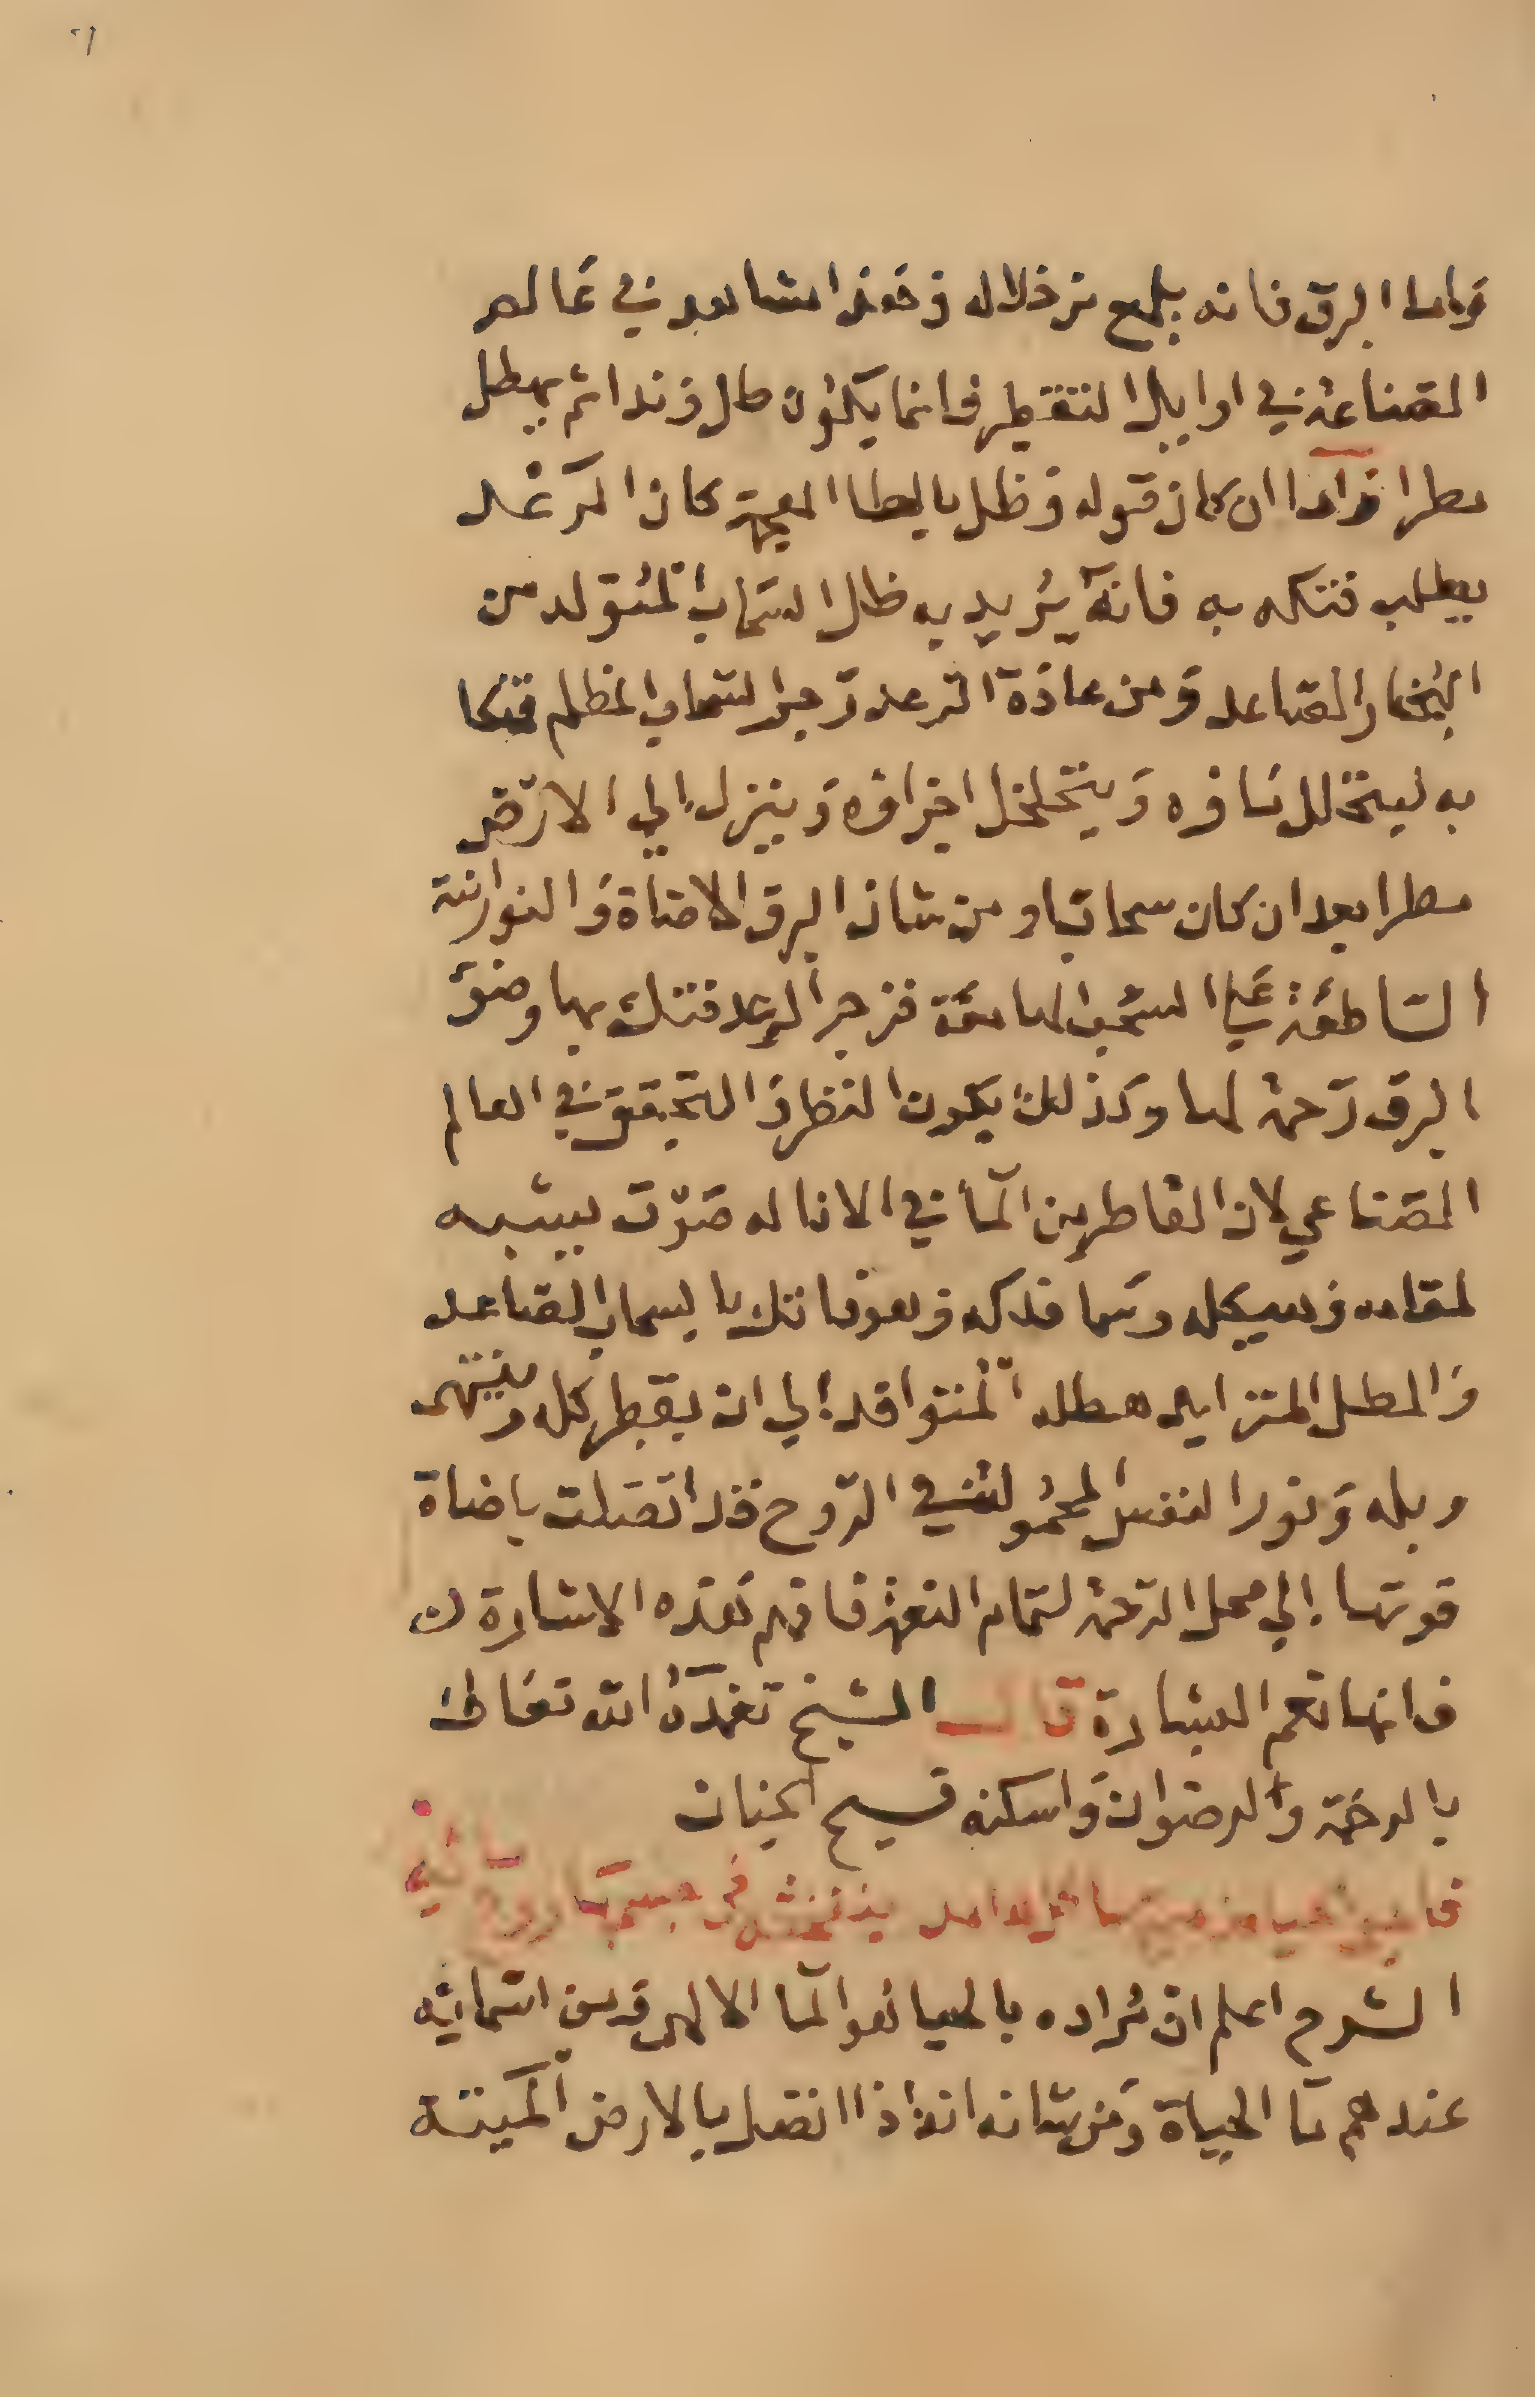 واما البرق فانه يلمع من خلاله وهو مشاهد في عالم
الصناعة في اوايل التقطير فانما يكون طل وندا ثم يهطل
مطرا فرادا ان كان قوله وظل بالظا المعجمة كان الرعد
يطلب فتكه به فانه يريد به ظل السحاب المتولد من
البخار الصاعد ومن عادة الرعد زجر السحاب المظلم فتكا
به ليتخلل سافره ويتخلخل اجزاوه وينزل الي الارض
مطرا بعد ان كان سحابا ومن شان البرق الاضاة والنورانية
الساطعة علي السحب الهامعة فزجر الرعد فتك بها وضو
البرق رحمة لها وكذلك يكون النظر والتحقيق في العالم
الصناعي لان القاطر من الما في الانا له صوت يشبه
والهطل المتزايد هطله المتوافد الي ان يقطر كله وينتهي
وبله ونور النفس المحمولة في الروح قد اتصلت باضاة
قوتها الي محل الرحمة لتمام النعمة فافهم هذه الاشارة
فانها نعم البشارة قال الشيخ تغمده الله تعالي
بالرحمة والرضوان واسكنه فسيح الجنان
الشرح اعلم ان مراده بالحيا هو الما الالهي ومن اسمائه
عندهم ما الحياة ومن شانه انه اذا اتصل بالارض الميتة